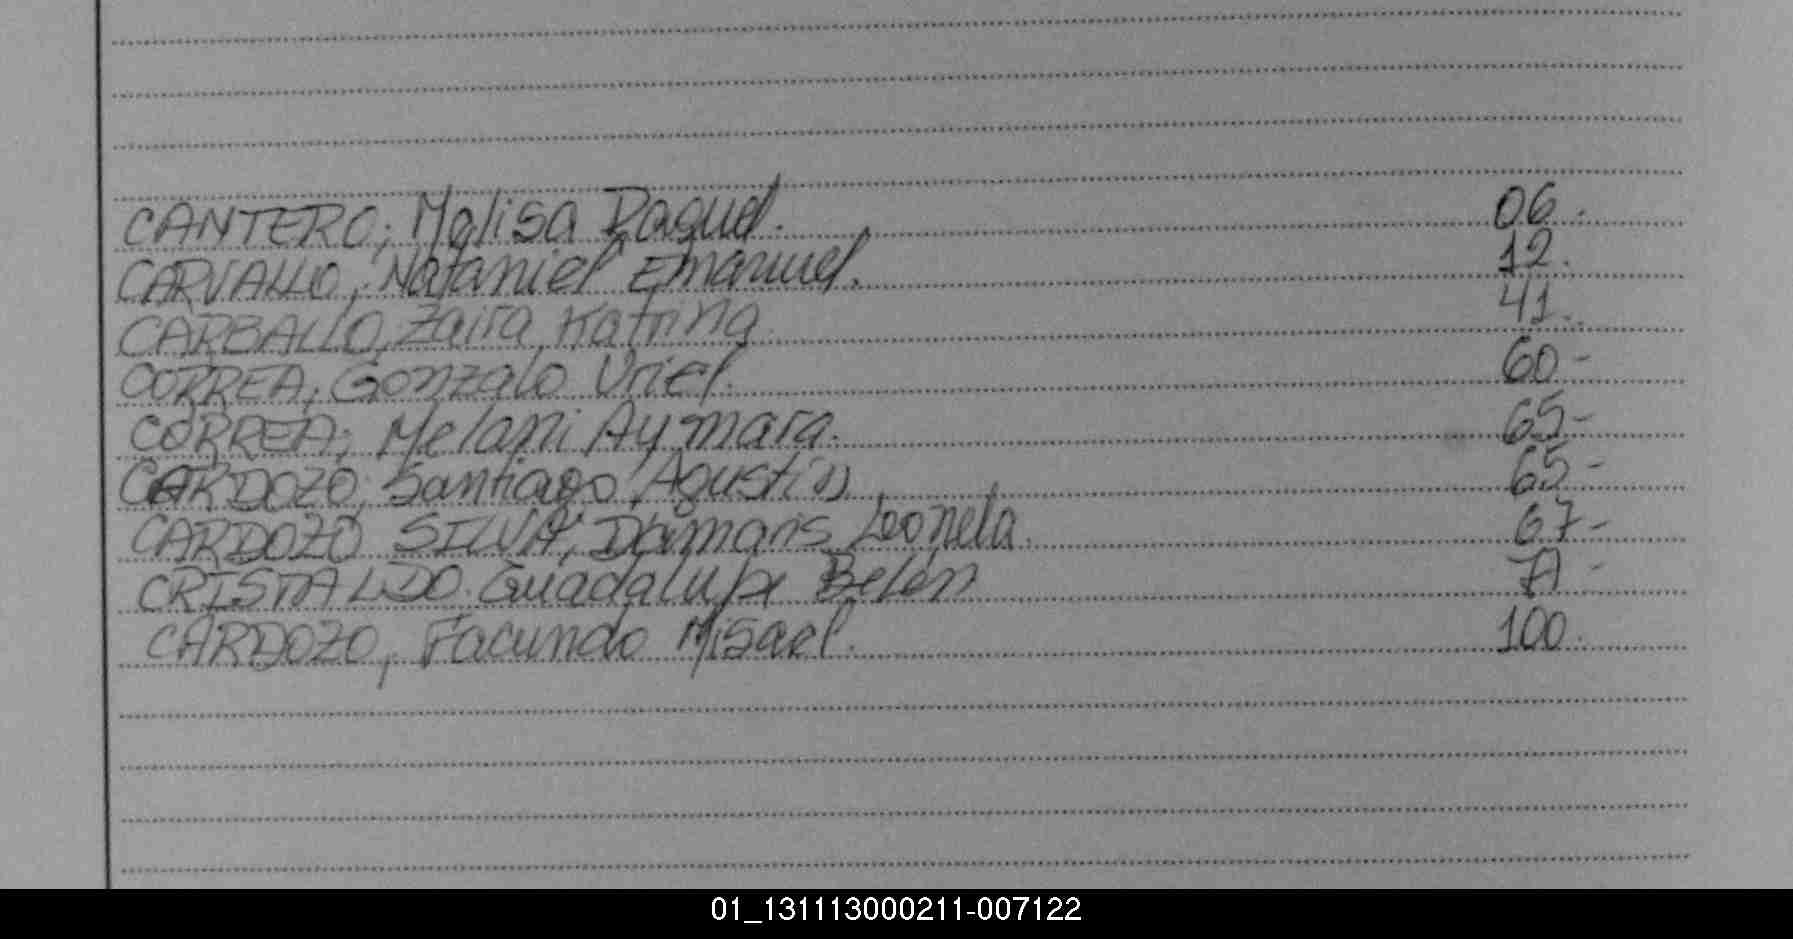 CANTERO, Melisa Raquel. 06.
CARVALLO, Nataniel Emanuel. 12.
CARBALLO, Zaira Katrina. 41.
CORREA, Gonzalo Uriel. 60-
CORREA, Melani Aymara. 65-
CARDOZO, Santiago Agustín 65-
CARDOZO SILVA, Damaris Leonela. 67-
CRISTALDO Guadalupe Belén 71-
CARDOZO, Facundo Misael. 100.
01_131113000211-007122